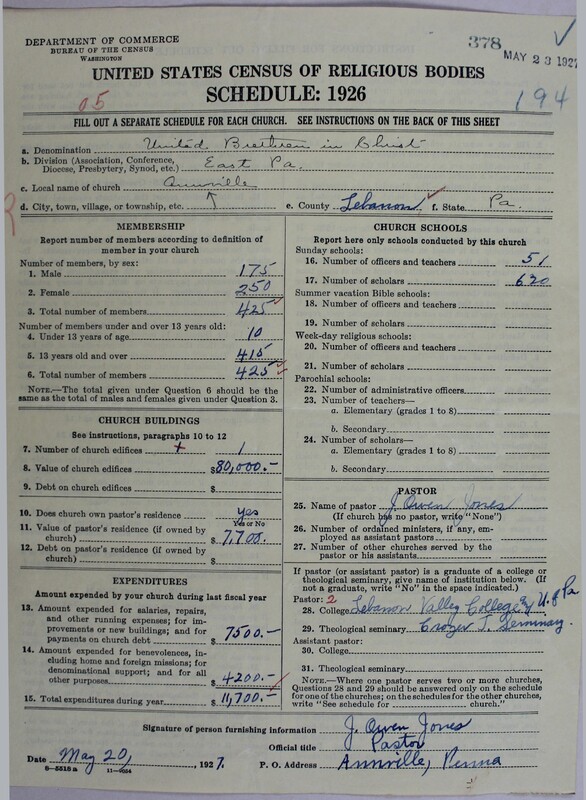 DEPARTMENT OF COMMERCE
BUREAU OF THE CENSUS
WASHINGTON
378
MAY 23 1927
UNITED STATES CENSUS OF RELIGIOUS BODIES
SCHEDULE: 1926
05
194
FILL OUT A SEPARATE SCHEDULE FOR EACH CHURCH. SEE INSTRUCTIONS ON THE BACK OF THIS SHEET
a. Denomination United Brethren in Christ
b. Division (Association, Conference, Diocese, Presbytery, Synod, etc.) East Pa.
c. Local name of church Annville
d. City, town, village, or township, etc. ↑ e. County Lebanon f. State Pa.
MEMBERSHIP
Report number of members according to definition of member in your church
Number of members, by sex:
1. Male 175
2. Female 250
3. Total number of members 425
Number of members under and over 13 years old:
4. Under 13 years of age 10
5. 13 years old and over 415
6. Total number of members 425
NOTE.—The total given under Question 6 should be the same as the total of males and females given under Question 3.
CHURCH BUILDINGS
See instructions, paragraphs 10 to 12
7. Number of church edifices 1
8. Value of church edifices $80,000.-
9. Debt on church edifices $
10. Does church own pastor's residence yes
Yes or No
11. Value of pastor's residence (if owned by church) $7,700.-
12. Debt on pastor's residence (if owned by church) $
EXPENDITURES
Amount expended by church during last fiscal year
13. Amount expended for salaries, repairs, and other running expenses; for improvements or new buildings; and for payments on church debt $7500.-
14. Amount expended for benevolences, including home and foreign missions; for denominational support; and for all other purposes $4200.-
15. Total expenditures during year $11,700.-
CHURCH SCHOOLS
Report here only schools conducted by this church
Sunday schools:
16. Number of officers and teachers 51
17. Number of scholars 620
Summer vacation Bible schools:
18. Number of officers and teachers
19. Number of scholars
Week-day religious schools:
20. Number of officers and teachers
21. Number of scholars
Parochial schools:
22. Number of administrative officers
23. Number of teachers—
a. Elementary (grades 1 to 8)
b. Secondary
24. Number of scholars—
a. Elementary (grades 1 to 8)
b. Secondary
PASTOR
25. Name of pastor J. Owen Jones
(If church has no pastor, write "None")
26. Number of ordained ministers, if any, employed as assistant pastors
27. Number of other churches served by the pastor or his assistants
If pastor (or assistant pastor) is a graduate of a college or theological seminary, give name of institution below. (If not a graduate, write "No" in the space indicated.)
Pastor: 2
28. College Lebanon Valley College & U. of Pa
29. Theological seminary Crozer T. Seminary.
Assistant pastor:
30. College
31. Theological seminary
NOTE.—Where one pastor serves two or more churches, Questions 28 and 29 should be answered only on the schedule for one of the churches; on the schedules for the other churches, write "See schedule for church."
Signature of person furnishing information J. Owen Jones
Official title Pastor
Date May 20, 1927. P. O. Address Annville, Penna
8—5518 a 11—9054